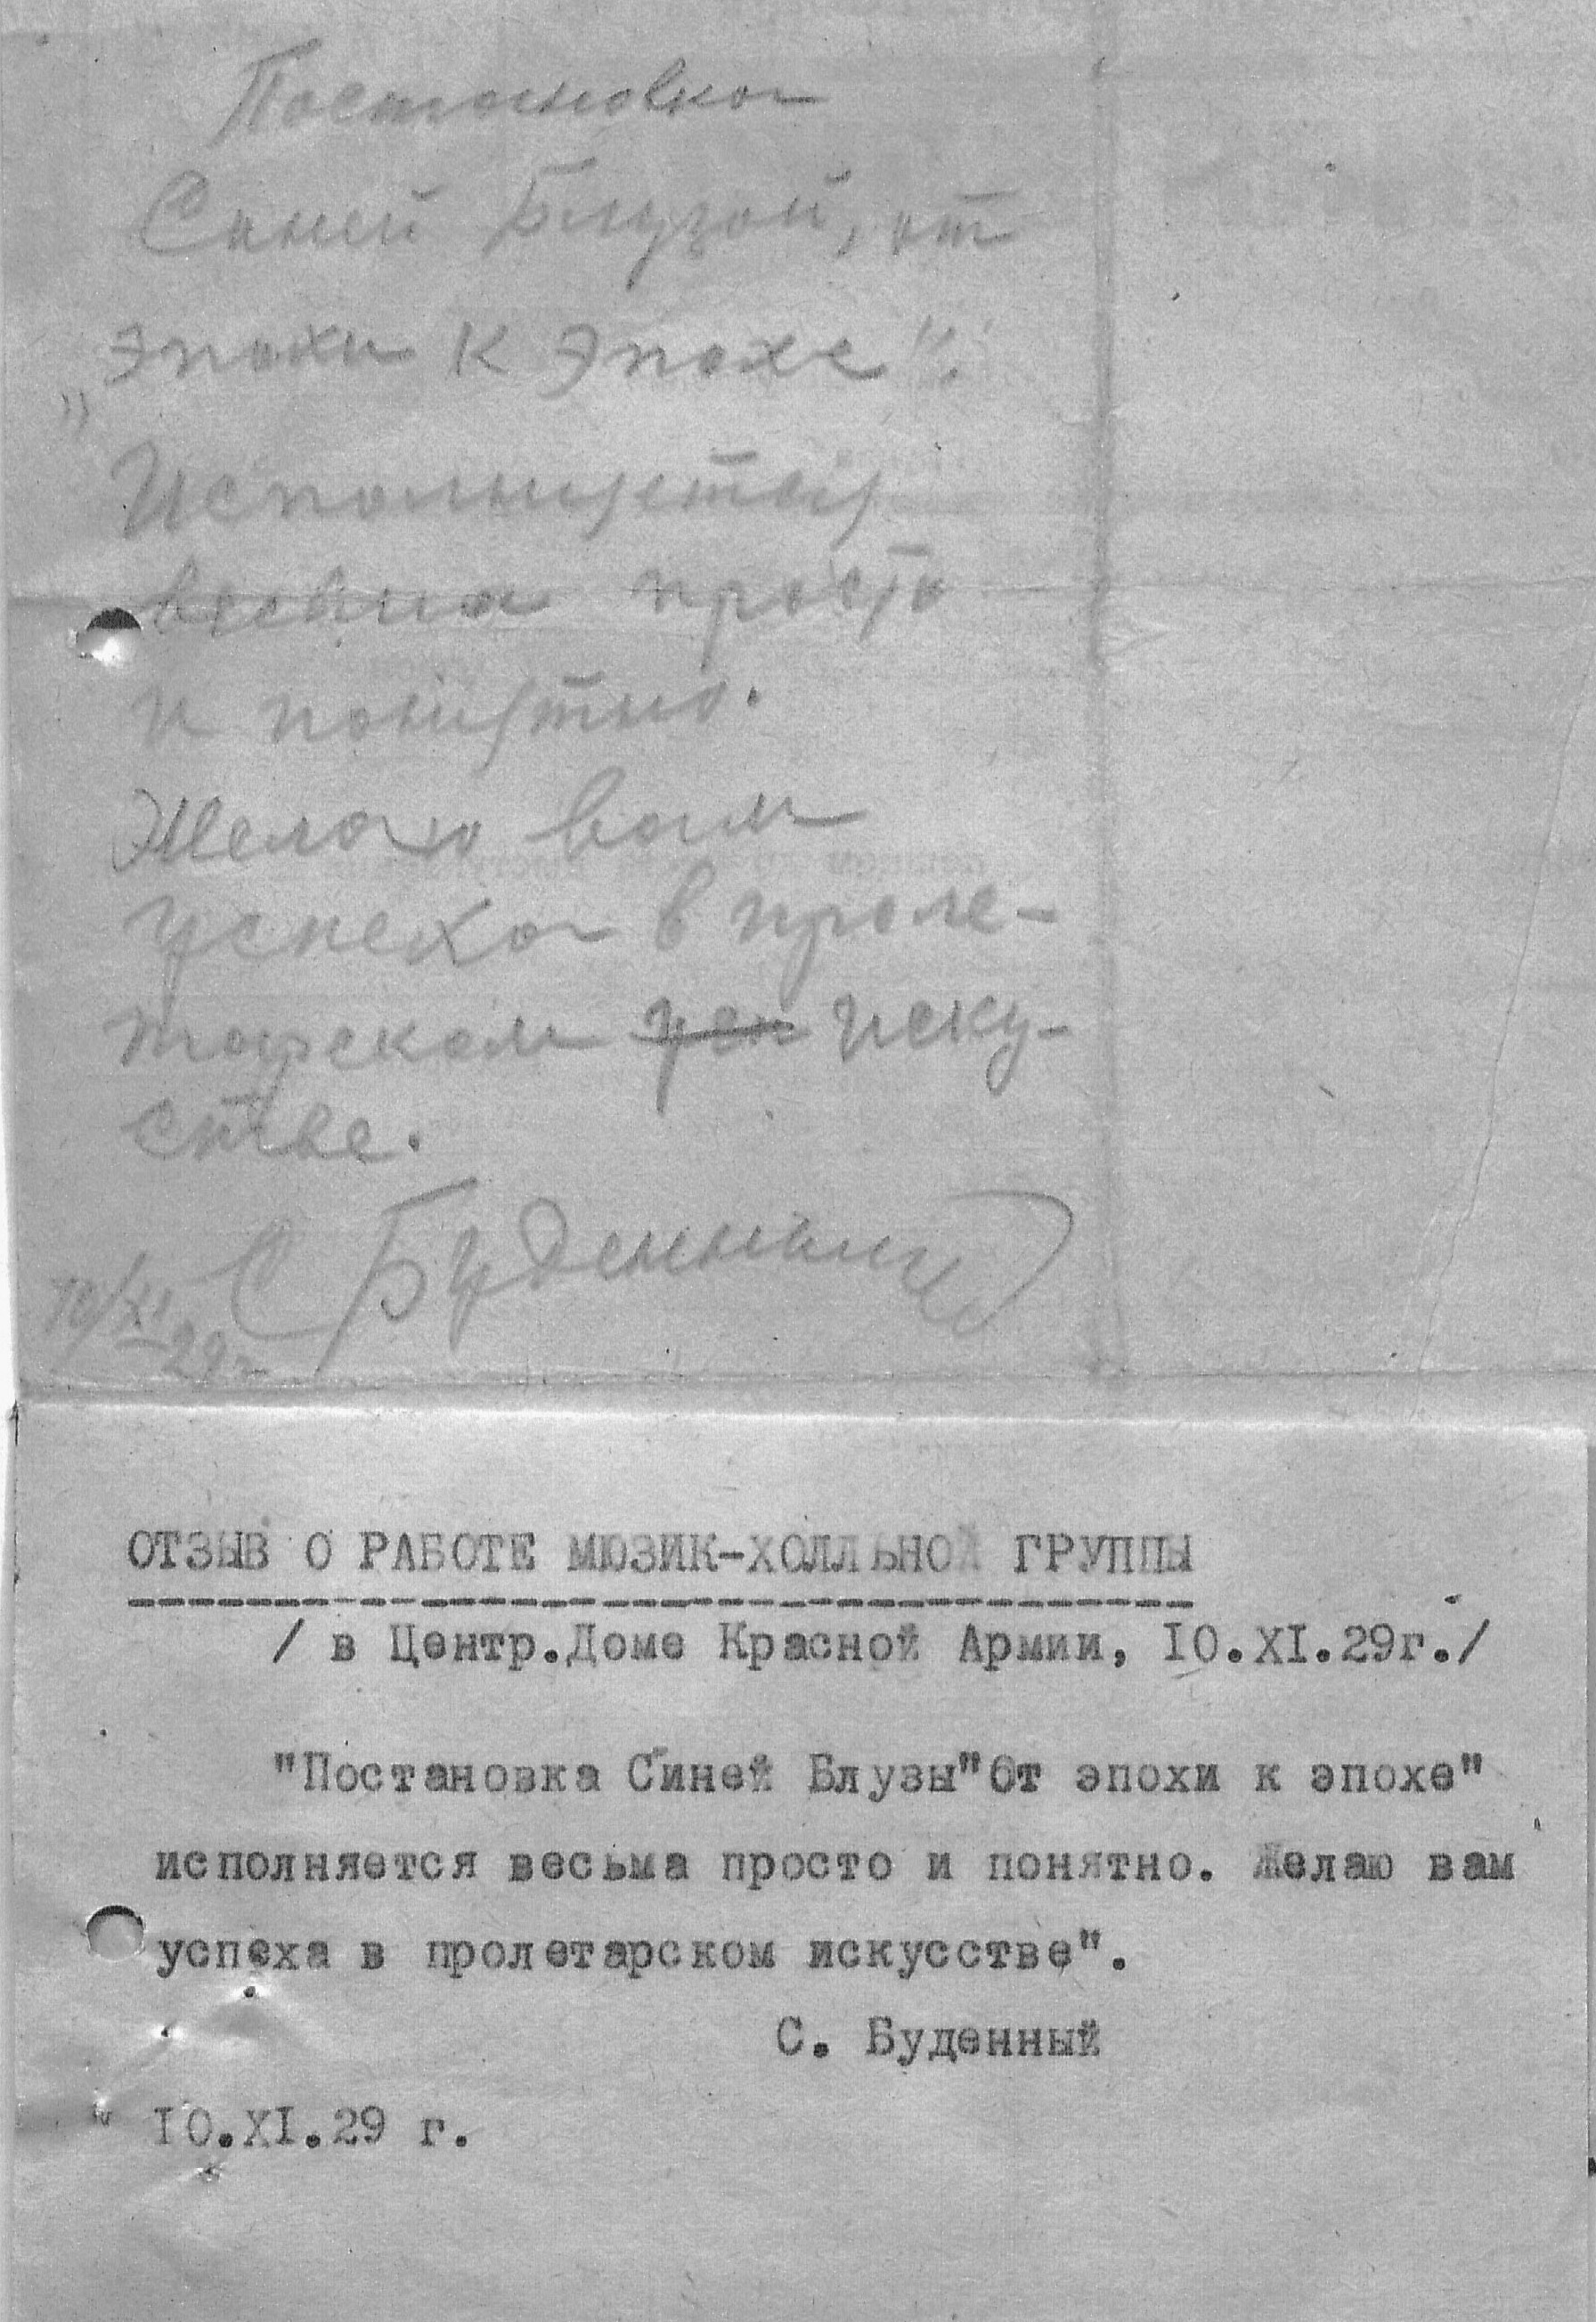 Постановка
Синей Блузой, от
эпохи к эпохе".
"
Исполняется
весьма просто
и понятно.
Желаю вам
успеха в проле-
тарском усп иску-
стве.
С Буденный
10/XI
29г
ОТЗЫВ О РАБОТЕ МЮЗИК-ХОЛЛЬНОЙ ГРУППЫ
/ в Центр.Доме Красной Армии, IO.XI.29г./
"Постановка Синей Блузы"От эпохи к эпохе"
исполняется весьма просто и понятно. Желаю вам
успеха в пролетарском искусстве".
С. Буденный
IO.XI.29 г.